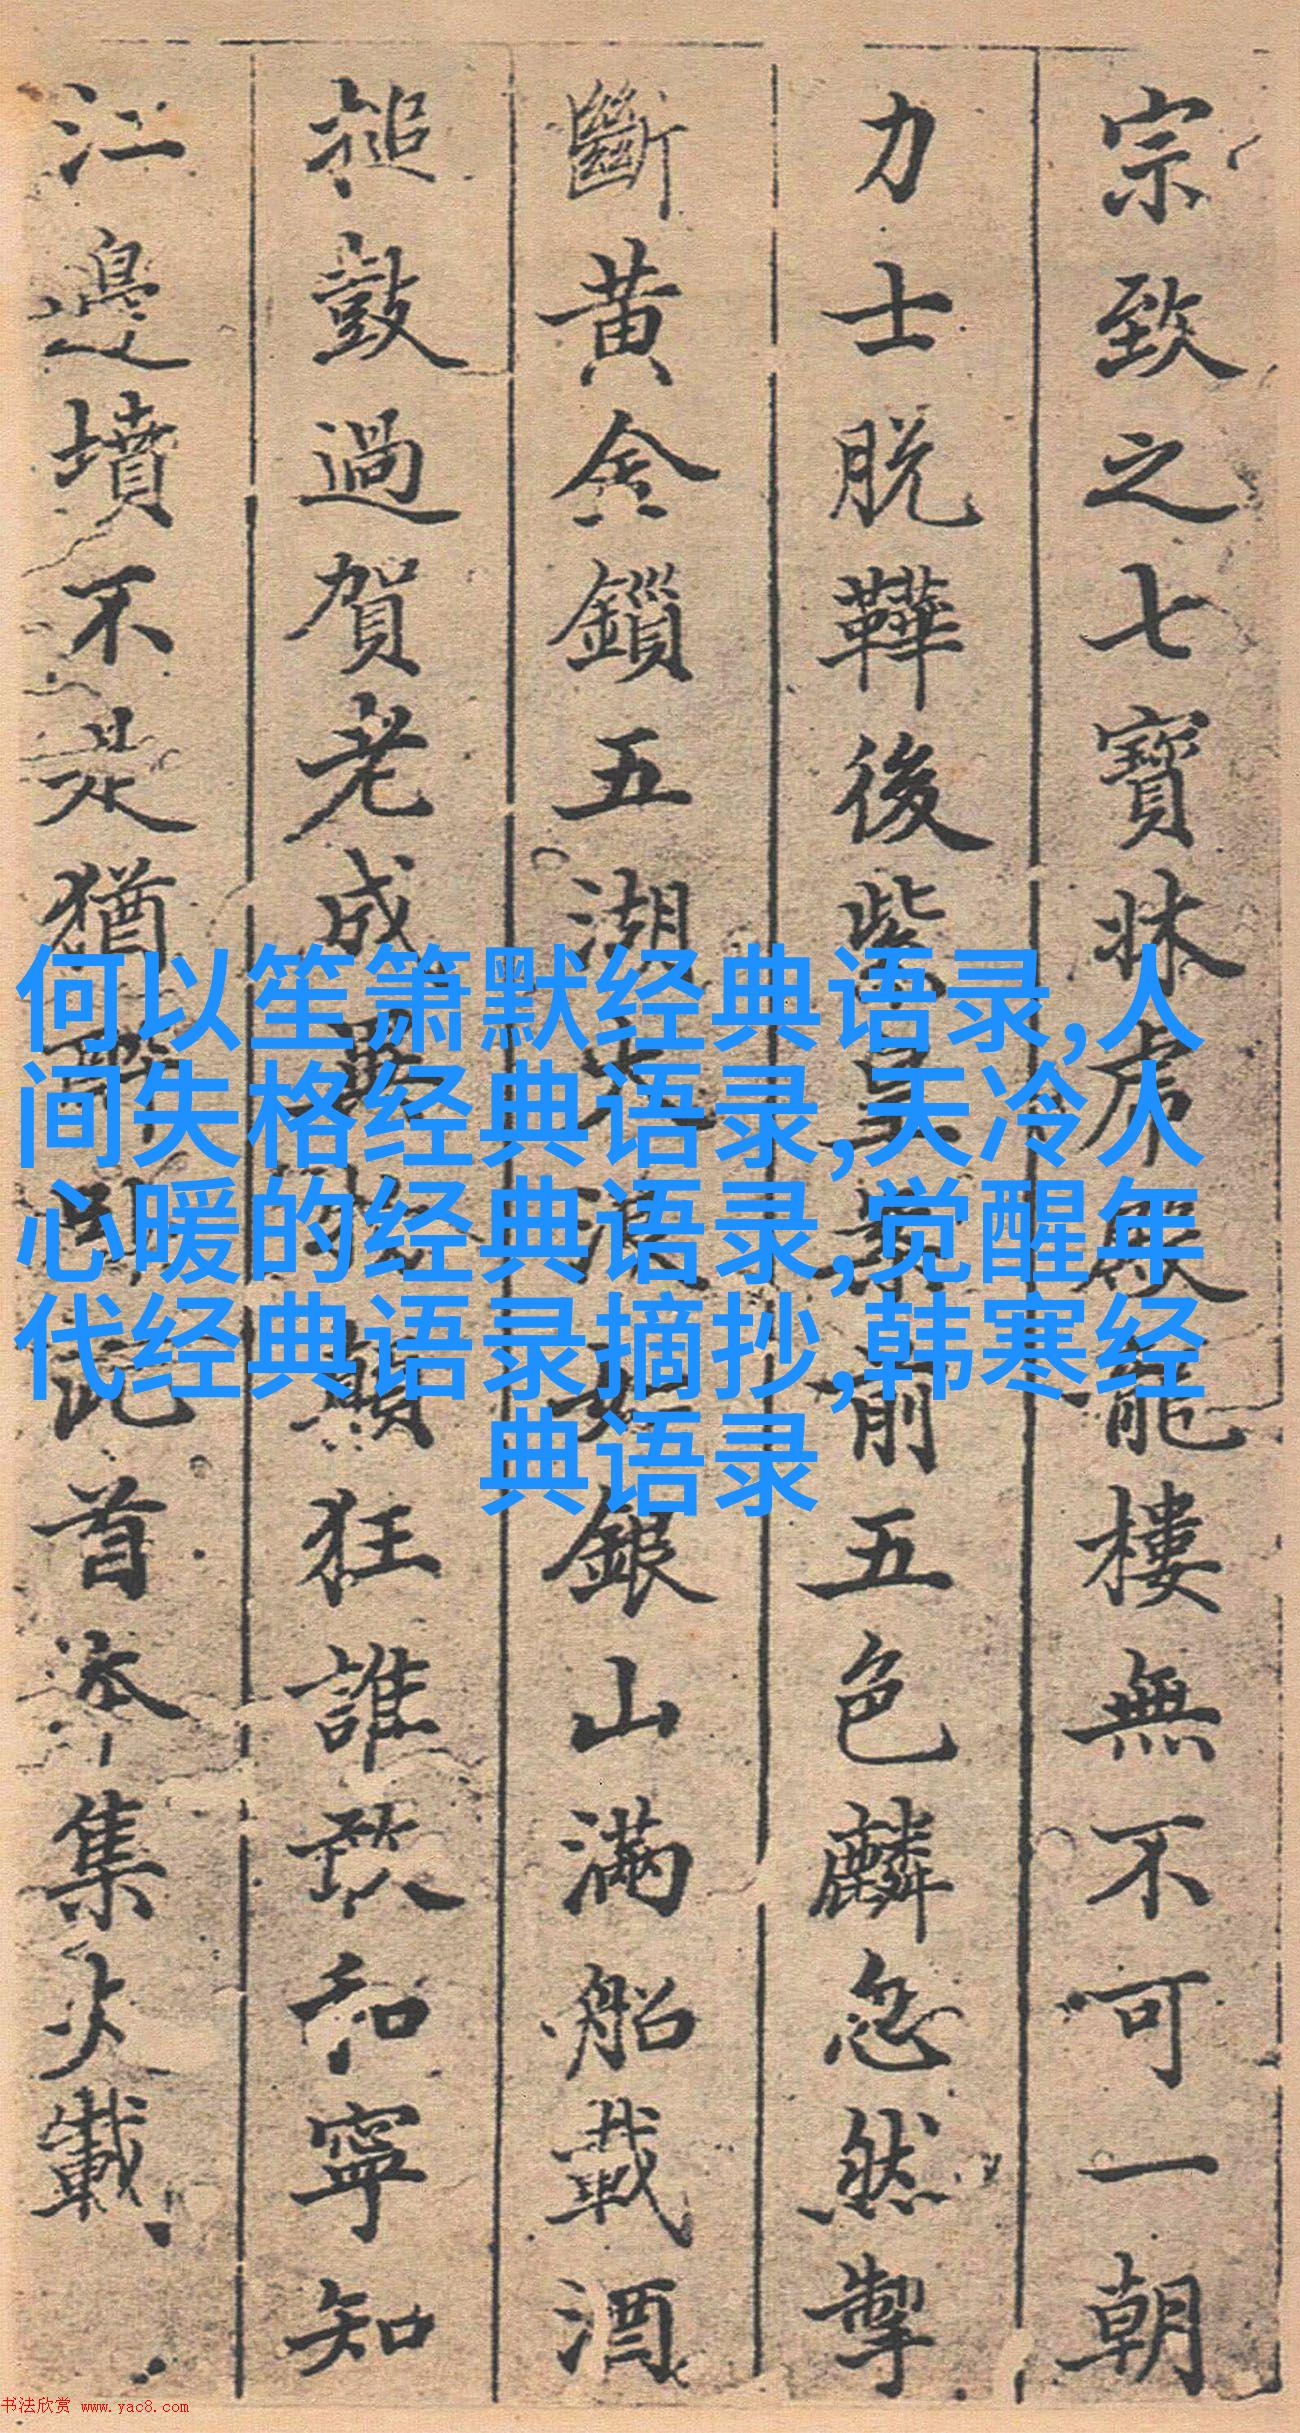 宗致之七寶牀虎殿龍樓無不可一朝
力士脫鞾後紫皇案前五色麟忽然掣
斷黃金鎖五湖大浪如銀山滿船載酒
搥鼓過賀老成異物顛狂誰敢和寧知
江邊墳不是猶醉臥此首本集載
何以笙箫默经典语录,人
间失格经典语录,天冷人
心暖的经典语录,觉醒年
代经典语录摘抄,韩寒经
典语录
书法欣赏 www.yac8.com